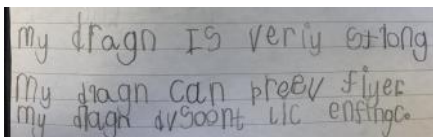 my dragn IS veriy strong
My dragn can preev fiyer
my dragn dysoont lic enfingc